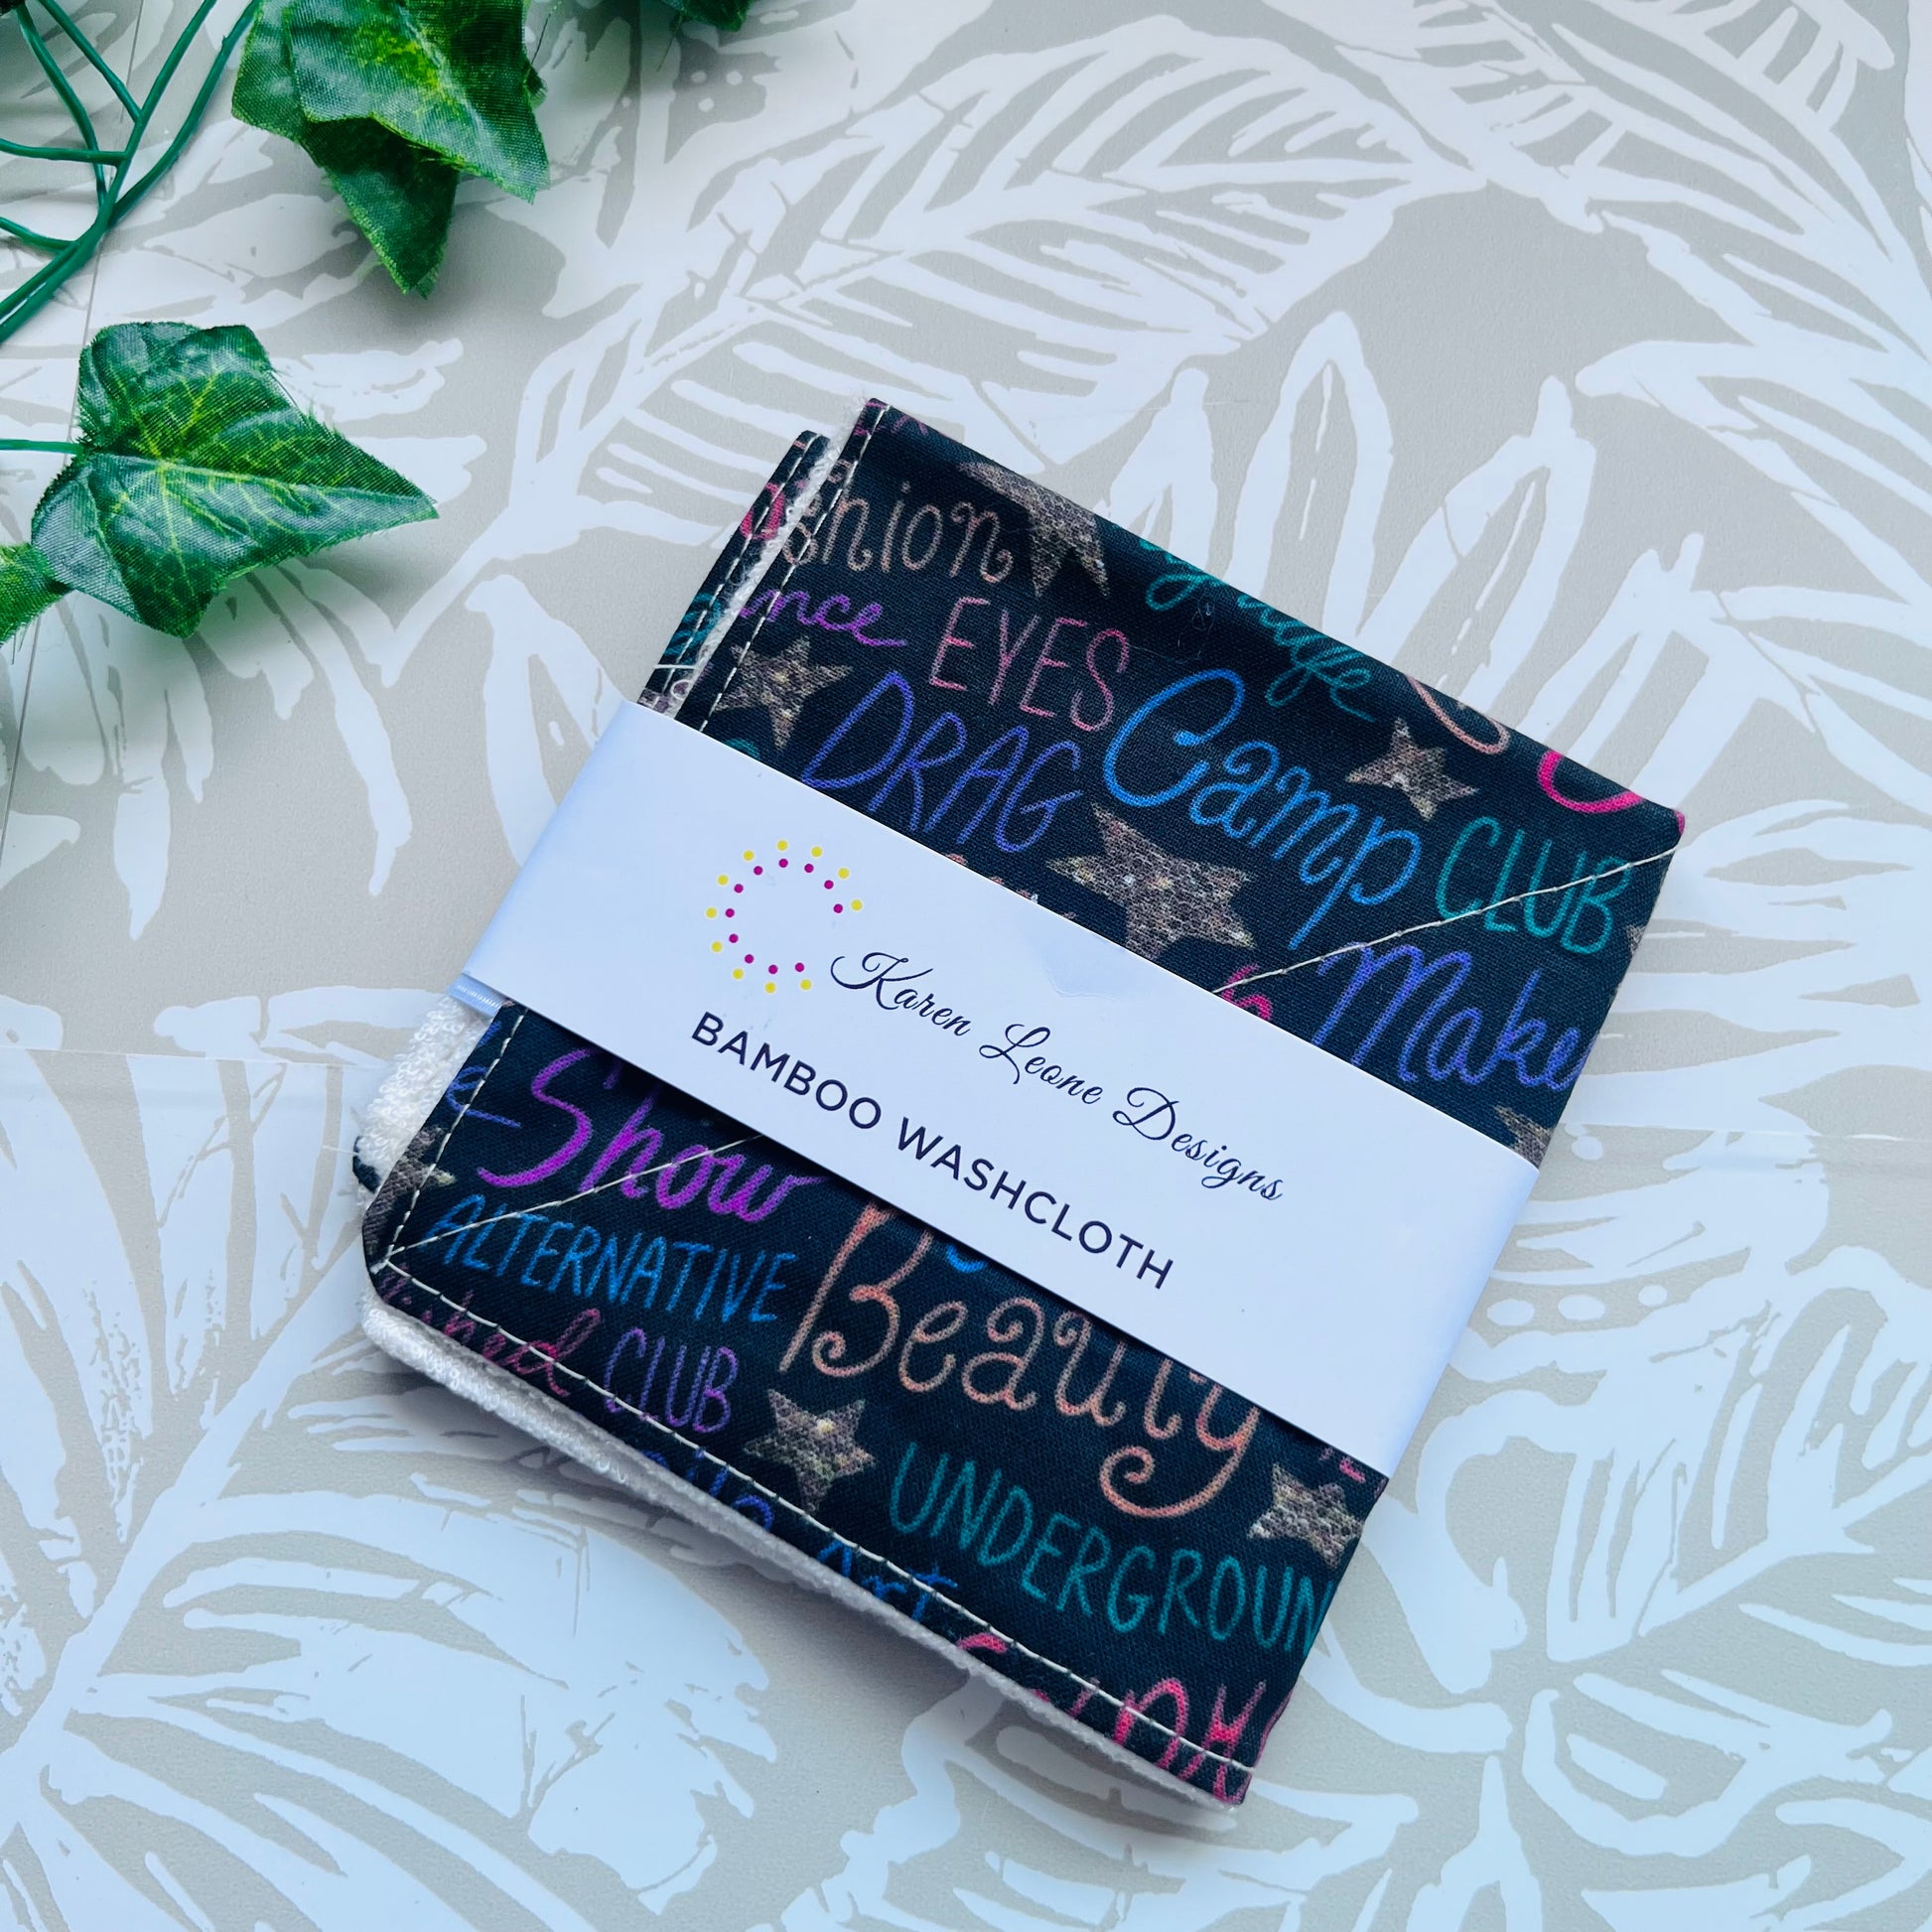 EYES
DRAG
Camp
CLUB
Make
Karen Leone Designs
BAMBOO WASHCLOTH
Show
ALTERNATIVE
Beauty
CLUB
UNDERGROUN
Art